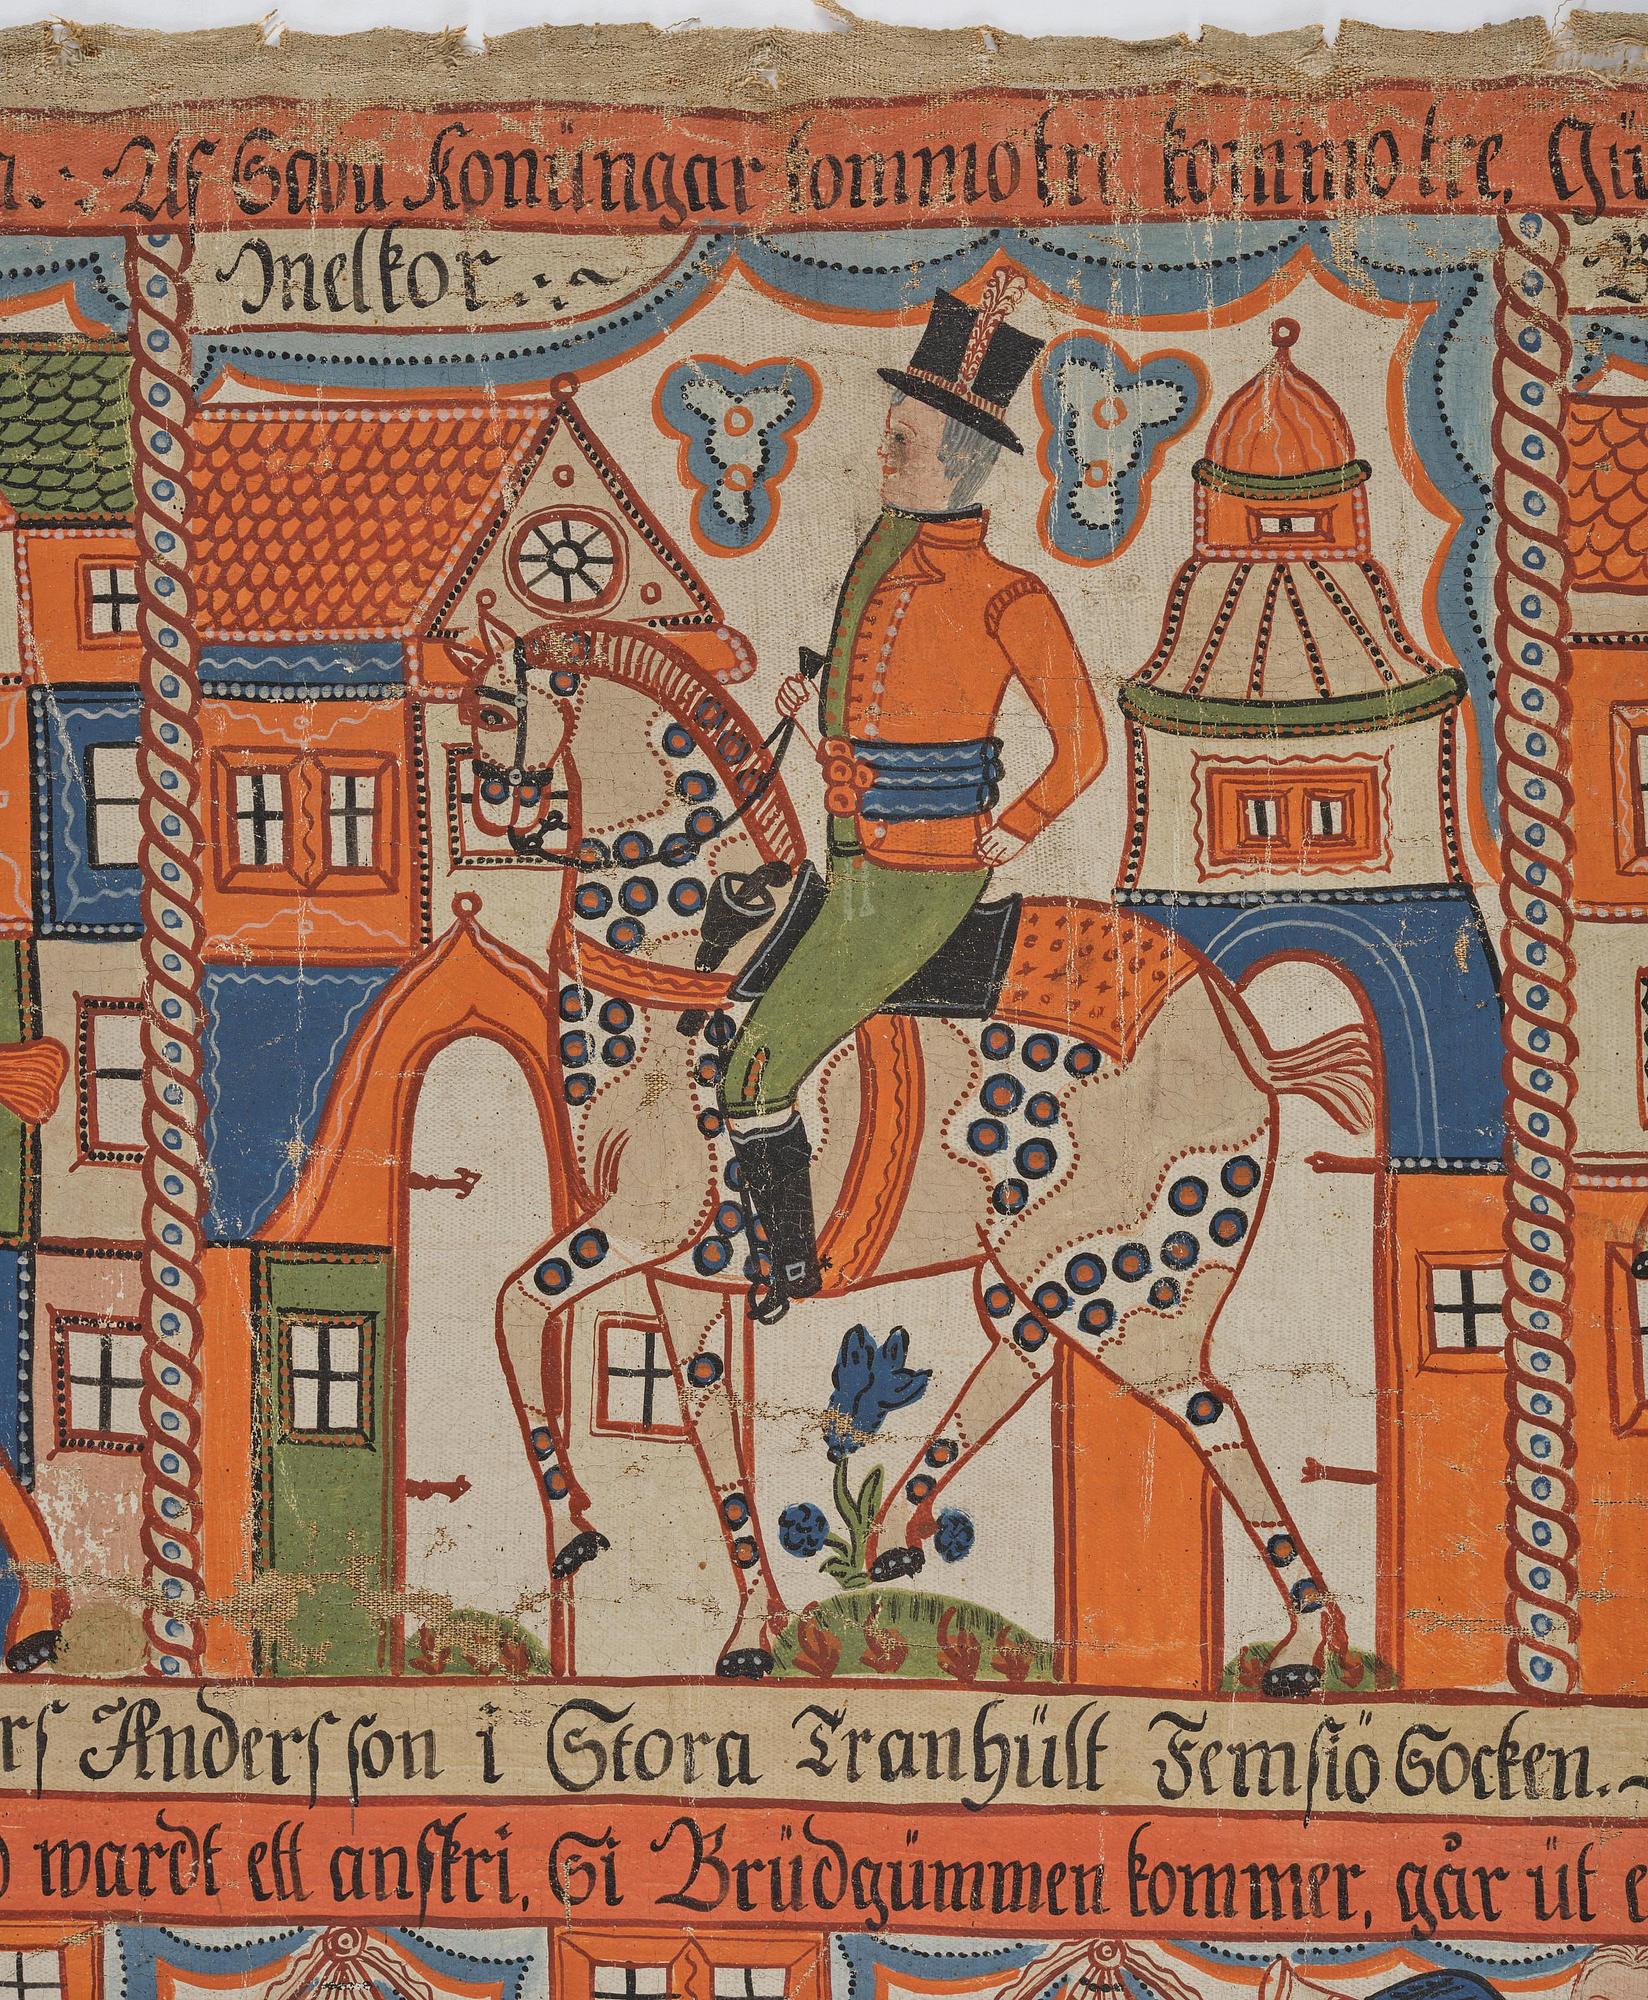 a. : Af Saba Konüngar kommo tre, kommo tre. Gü
Melkor
rs Andersson i Stora Tranhült Femsiö Socken.
wardt ett anskri, Si Brüdgümmen kommer, går üt e